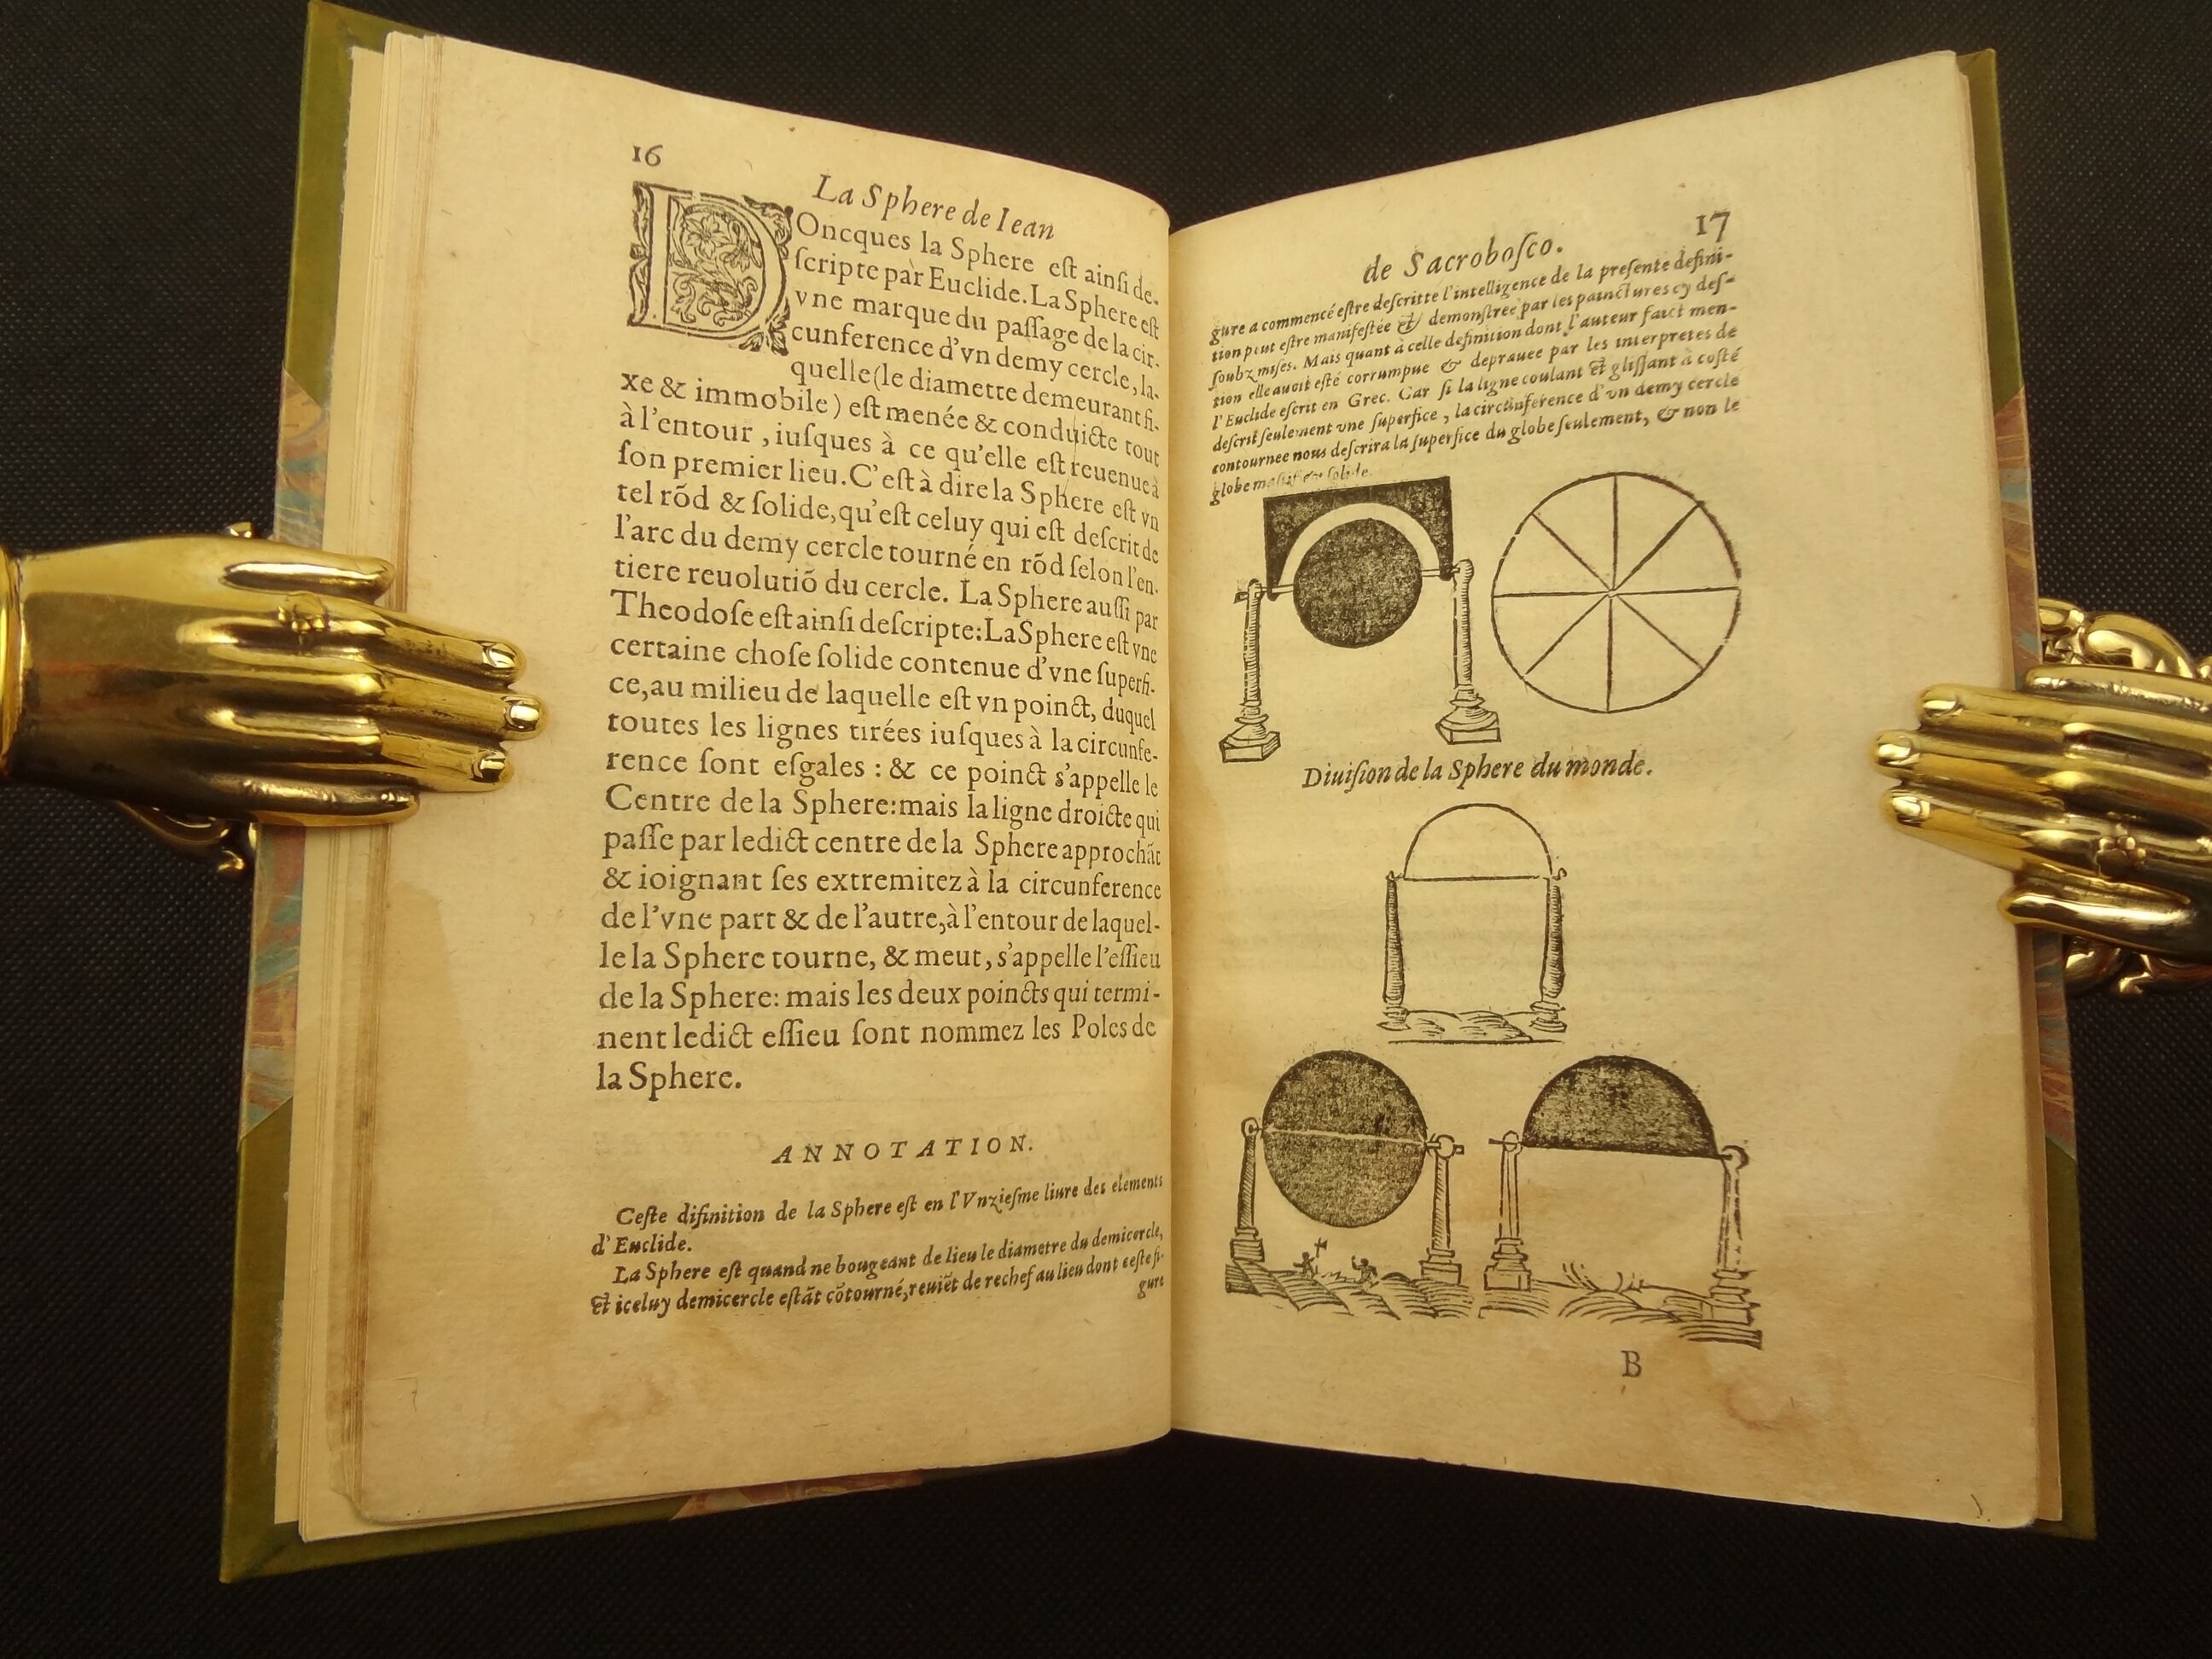 16
La Sphere de Iean
DOncques la Sphere est ainſi de-
ſcripte par Euclide. La Sphere est
vne marque du paſſage de la cir-
cunference d'vn demy cercle, la-
quelle (le diamette demeurant fi-
xe & immobile) est menée & conduicte tout
à l'entour, iuſques à ce qu'elle est reuenue à
ſon premier lieu. C'est à dire la Sphere est vn
tel rõd & ſolide, qu'est celuy qui est deſcrit de
l'arc du demy cercle tourné en rõd ſelon l'en-
tiere reuolutiõ du cercle. La Sphere auſſi par
Theodoſe est ainſi deſcripte: La Sphere est vne
certaine choſe ſolide contenue d'vne ſuperfi-
ce, au milieu de laquelle est vn poinct, duquel
toutes les lignes tirées iuſques à la circunfe-
rence ſont eſgales : & ce poinct s'appelle le
Centre de la Sphere: mais la ligne droicte qui
paſſe par ledict centre de la Sphere approchãt
& ioignant ſes extremitez à la circunference
de l'vne part & de l'autre, à l'entour de laquel-
le la Sphere tourne, & meut, s'appelle l'eſſieu
de la Sphere: mais les deux poincts qui termi-
nent ledict eſſieu ſont nommez les Poles de
la Sphere.
ANNOTATION.
Ceſte difinition de la Sphere est en l'Vnzieſme liure des elements
d'Euclide.
La Sphere est quand ne bougeant de lieu le diametre du demicercle,
Et iceluy demicercle estãt cõtourné, reuiẽt de rechef au lieu dont ceste fi-
gure
17
de Sacroboſco.
gure a commencé estre deſcritte l'intelligence de la preſente defini-
tion peut estre manifestée & demonstrée par les painctures cy deſ-
ſoubz miſes. Mais quant à celle definition dont l'auteur faict men-
tion elle auoit esté corrumpue & deprauee par les interpretes de
l'Euclide eſcrit en Grec. Car ſi la ligne coulant Et gliſſant à costé
deſcrit ſeulement vne ſuperfice, la circũference d'vn demy cercle
contournee nous deſcrira la ſuperfice du globe ſeulement, & non le
globe maſſif & ſolide.
Diuiſion de la Sphere du monde.
B